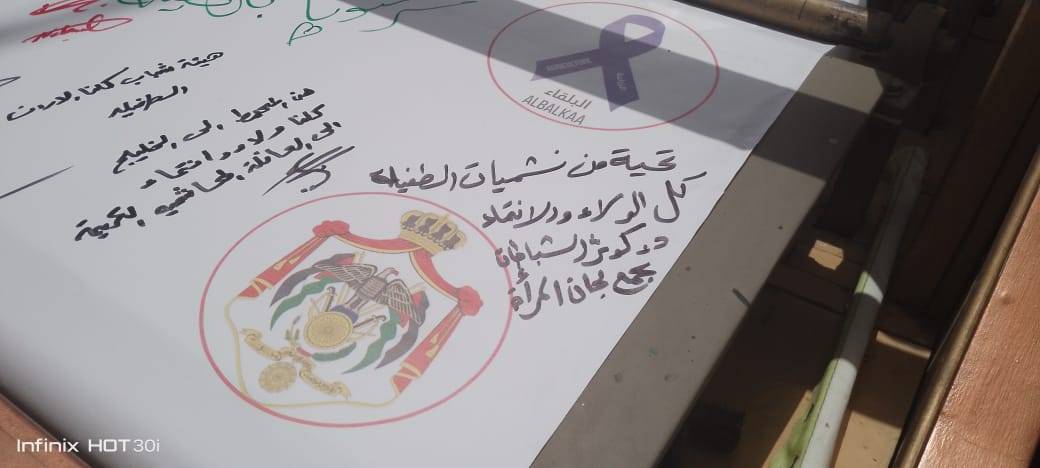 هيئة شباب كلنا الاردن
الطفيله
من المحيط الى الخليج
كلنا ولاء وانتماء
الى العائلة الهاشميه الكريمة
AGRICULTURE
البلقاء
ALBALKAA
تحية من نشميات الطفيله
كل الولاء والانتماء
د. كوثر الشباطات
تجمع لجان المرأة
Infinix HOT 30i